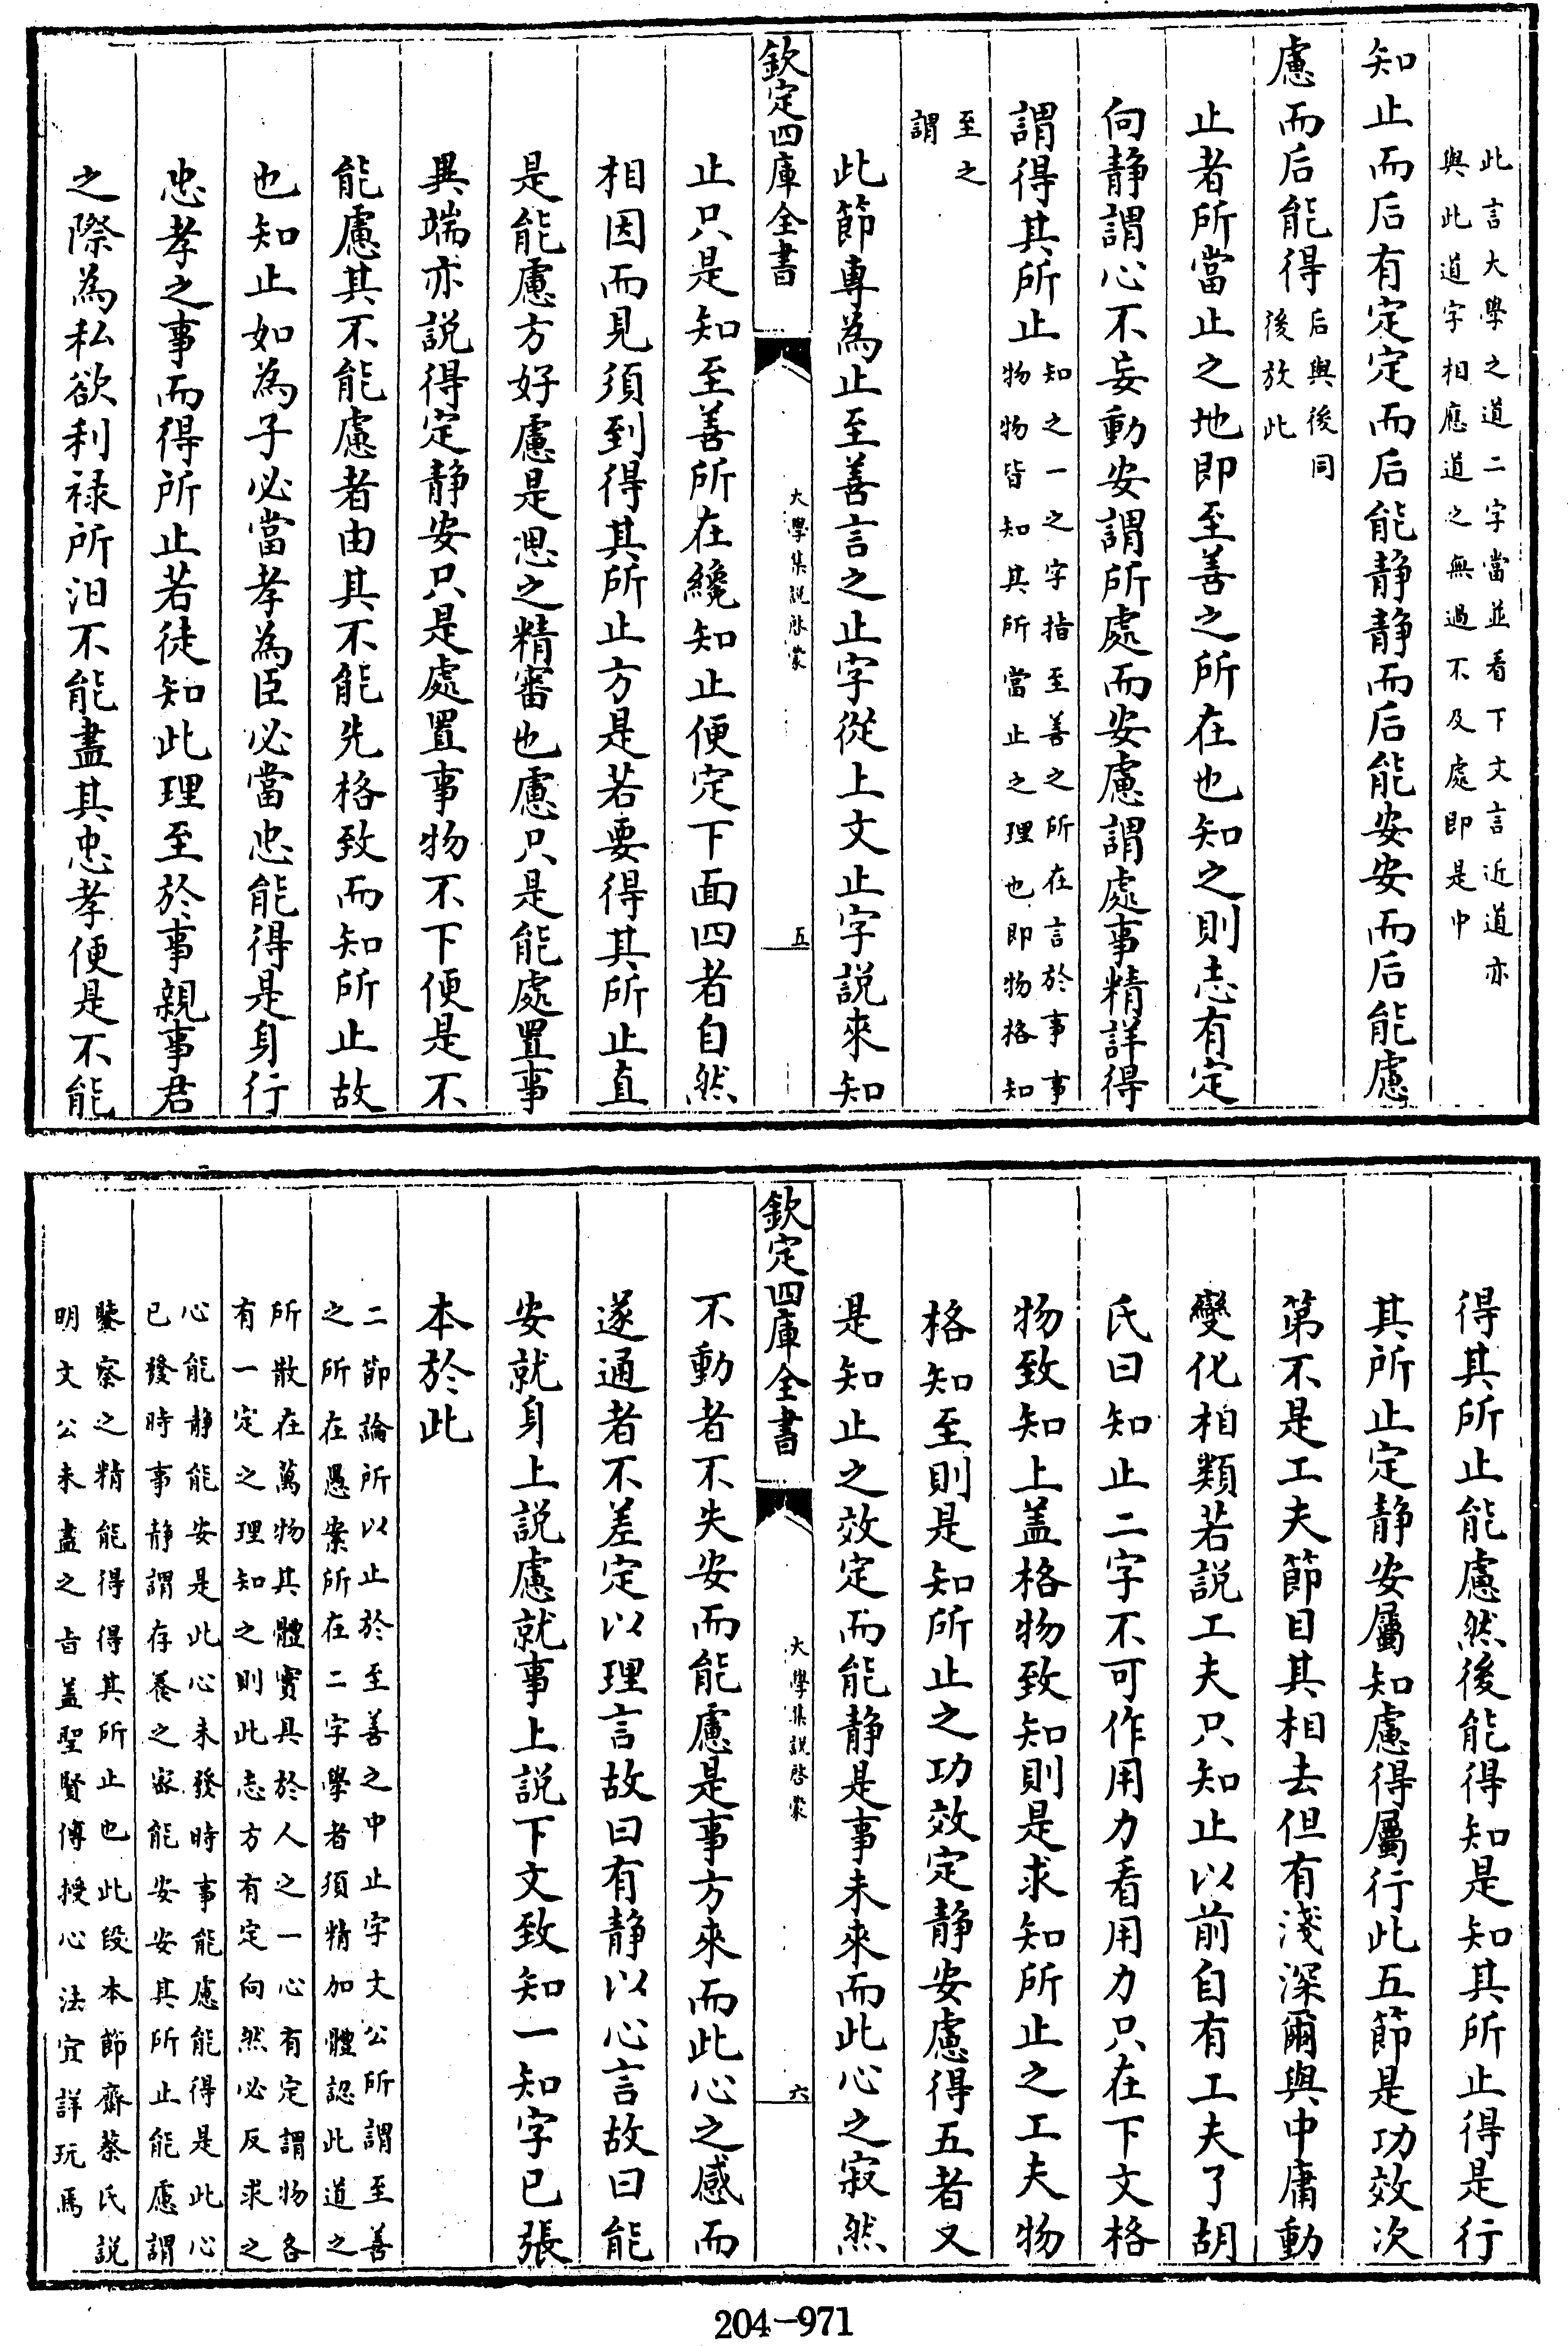 此言大學之道二字當並看下文言近道亦
與此道字相應道之無過不及處即是中
知止而后有定定而后能静静而后能安安而后能慮
慮而后能得后與後同
後放此
止者所當止之地即至善之所在也知之則志有定
向静謂心不妄動安謂所處而安慮謂處事精詳得
謂得其所止知之一之字指至善之所在言於事事
物物皆知其所當止之理也即物格知
至之
謂
此節專為止至善言之止字從上文止字説來知
欽定四庫全書
大學集説啓蒙
五
止只是知至善所在纔知止便定下面四者自然
相因而見須到得其所止方是若要得其所止直
是能慮方好慮是思之精審也慮只是能處置事
異端亦説得定静安只是處置事物不下便是不
能慮其不能慮者由其不能先格致而知所止故
也知止如為子必當孝為臣必當忠能得是身行
忠孝之事而得所止若徒知此理至於事親事君
之際為私欲利禄所汩不能盡其忠孝便是不能
得其所止能慮然後能得知是知其所止得是行
其所止定静安屬知慮得屬行此五節是功效次
第不是工夫節目其相去但有淺深爾與中庸動
變化相類若説工夫只知止以前自有工夫了胡
氏曰知止二字不可作用力看用力只在下文格
物致知上盖格物致知則是求知所止之工夫物
格知至則是知所止之功效定静安慮得五者又
是知止之效定而能静是事未來而此心之寂然
欽定四庫全書
大學集説啓蒙
六
不動者不失安而能慮是事方來而此心之感而
遂通者不差定以理言故曰有静以心言故曰能
安就身上説慮就事上説下文致知一知字已張
本於此
二節論所以止於至善之中止字文公所謂至善
之所在愚案所在二字學者須精加體認此道之
所散在萬物其體實具於人之一心有定謂物各
有一定之理知之則此志方有定向然必反求之
心能静能安是此心未發時事能慮能得是此心
已發時事静謂存養之密能安安其所止能慮謂
鑒察之精能得得其所止也此段本節齋蔡氏説
明文公未盡之旨盖聖賢傳授心法宜詳玩焉
204-971